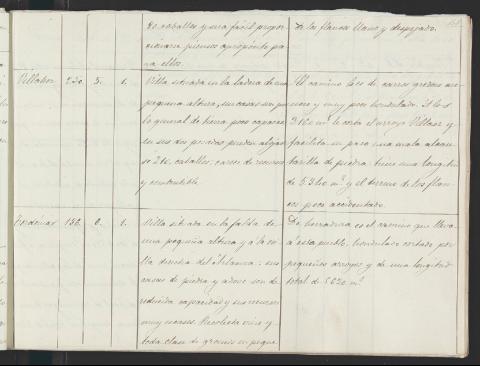 20 caballos y una facil propor-
cionaria piensos apropósito pa-
ra ellos.
de los flancos llano y despejado.
Villahoz 230. 5. 1.
Villa situada en la ladera de una
pequeña altura, sus casas son por
lo general de tierra poco capaces
en sus dos posadas pueden alojar-
se 20 caballos; carece de recursos
y combustible.
El camino es de carros gredoso are-
noso y muy poco hondulado. A los
3100 m. le corta el arroyo Villaor y
facilita su paso una mala alcan-
tarilla de piedra; tiene una longitud
de 5.310 m. y el terreno de los flan-
cos poco accidentado.
Tordómar 156. 0. 1.
Villa situada en la falda de
una pequeña altura y a la ori-
lla derecha del Arlanza: sus
casas de piedra y adove son de
reducida capacidad y sus recursos
muy escasos. Recolecta vino y
toda clase de granos en peque-
De herradura es el camino que lleva
a este pueblo, hondulado cortado por
pequeños arroyos y de una longitud
total de 5620 m.